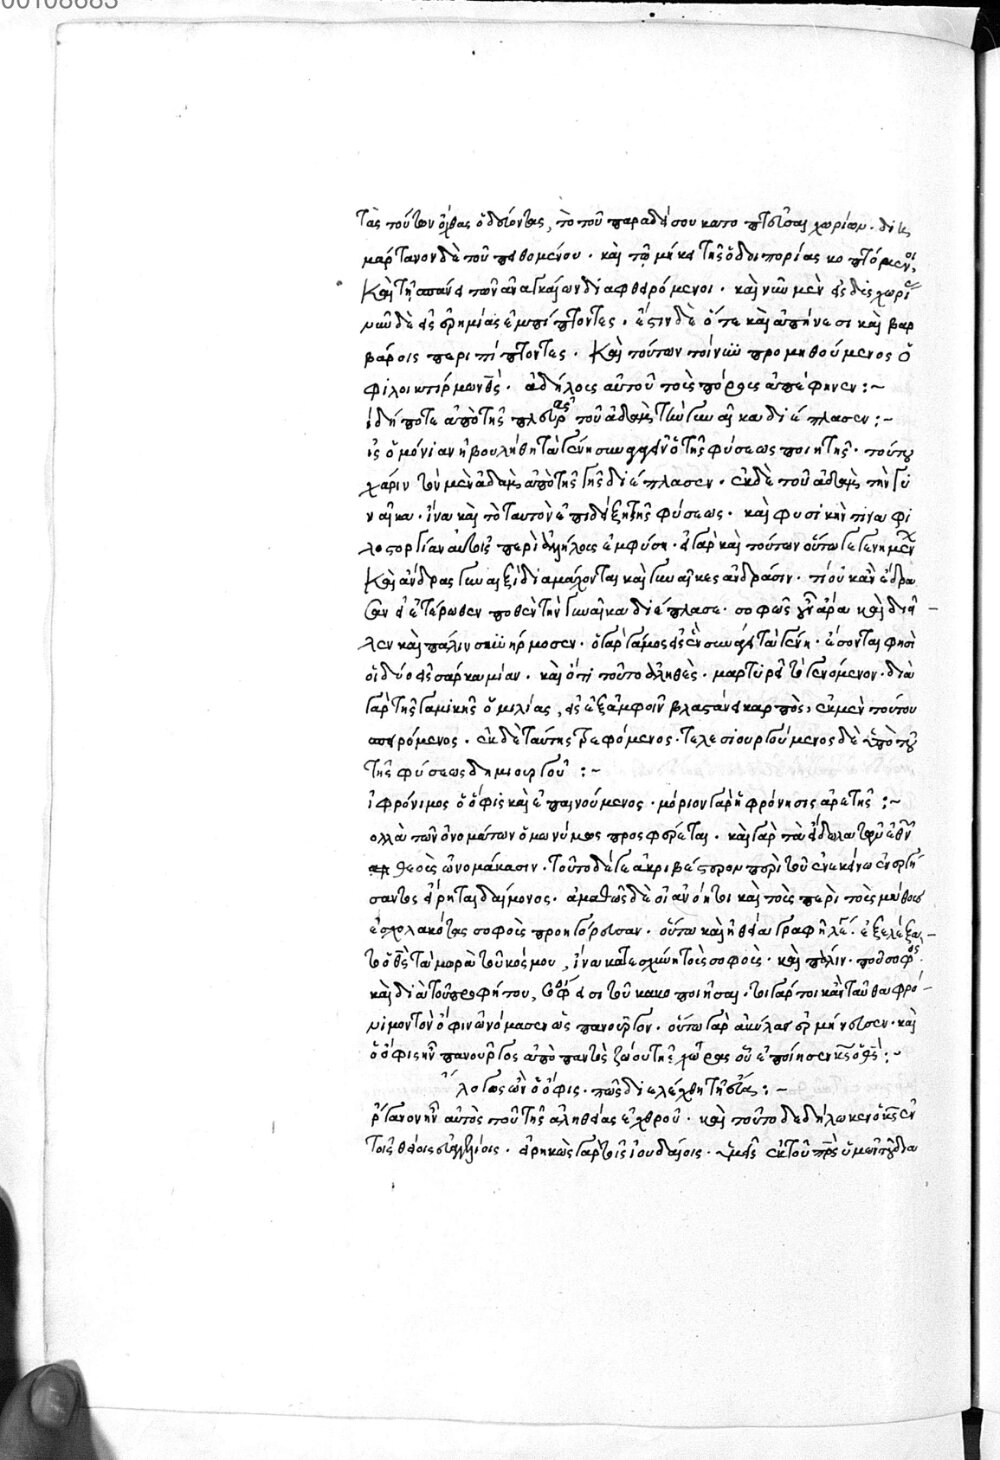 00108683
τὰς τούτων ὄχθας ὁδεύοντας, τὸ τοῦ παραδείσου κατοπτεῦσαι χωρίον. δι
μαρτάνον δὲ τοῦ πειθομένου. καὶ τῷ μήκει τῆς ὁδοιπορίας κοπτόμενοι,
Καὶ τῇ σπάνει τῶν ἀναγκαίων διαφθειρόμενοι. καὶ νῦν μὲν εἰς δυσχωρί
νῦν δὲ εἰς ἐρημίας ἐμπίπτοντες. ἔστιν δὲ ὅτε καὶ ἀπηνέσι καὶ βαρ
βάροις περιπίπτοντες. Καὶ τούτων τοίνυν προμηθούμενος ὁ
φιλοικτίρμων θς. ἀδήλους αὐτοῦ τοὺς πόρους ἀπέφηνεν :~
ί δήποτε ἀπὸ τῆς πλευρᾶς τοῦ ἀδὰμ τὴν γυναῖκα διέπλασεν :~
ἰς ὁμόνοιαν ἠβουλήθη τὰ γένη συναγαγεῖν ὁ τῆς φύσεως ποιητής. τούτου
χάριν τὸν μὲν ἀδὰμ ἀπὸ τῆς γῆς διέπλασεν. ἐκ δὲ τοῦ ἀδὰμ τὴν γυ
ναῖκα. ἵνα καὶ τὸ ταυτὸν ἐπιδείξῃ τῆς φύσεως. καὶ φυσικήν τινα φι
λοστοργίαν αὐτοῖς περὶ ἀλλήλους ἐμφύσῃ. εἰ γὰρ καὶ τούτων οὕτω γεγενημένων
Καὶ ἄνδρες γυναιξὶ διαμάχονται καὶ γυναῖκες ἀνδράσιν. τί οὐκ ἂν ἔδρα
σαν εἰ ἑτέρωθεν ποθεν τὴν γυναῖκα διέπλασε. σοφῶς γοῦν ἄρα καὶ διεῖ
λεν καὶ πάλιν συνήρμοσεν. ὁ γὰρ γάμος εἰς ἓν συνάγει τὰ γένη. ἔσονται φησὶ
οἱ δύο εἰς σάρκα μίαν. καὶ ὅτι τοῦτο ἀληθὲς. μαρτυρεῖ τὸ γενόμενον. διὰ
γὰρ τῆς γαμικῆς ὁμιλίας, εἷς ἐξ ἀμφοῖν βλαστάνει καρπὸς, ἐκ μὲν τούτου
σπειρόμενος. ἐκ δὲ ταύτης τρεφόμενος. τελεσιουργούμενος δὲ ὑπὸ τοῦ
τῆς φύσεως δημιουργοῦ :~
ἰ φρόνιμος ὁ ὄφις καὶ ἐπαινούμενος. μόριον γὰρ ἡ φρόνησις ἀρετῆς :~
ολλὰ τῶν ὀνομάτων ὁμωνύμως προσφέρεται. καὶ γὰρ τὰ εἴδωλα τῶν ἐθνῶν
θεοὺς ὠνομάκασιν. τοῦτο δέ γε ἀκριβέστερον περὶ τοῦ ἐν ἐκείνω ἐνεργή
σαντος εἴρηται δαίμονος. ἀμαθῶς δὲ οἱ ἀνόητοι καὶ τοὺς περὶ τοὺς μύθους
ἐσχολακότας σοφοὺς προηγόρευσαν. οὕτω καὶ ἡ θεία γραφὴ λέγει. ἐξελέξα
το ὁ θς τὰ μωρὰ τοῦ κόσμου, ἵνα καταισχύνῃ τοὺς σοφούς. καὶ πάλιν. τοῦ σοφοῦ
καὶ διὰ τοῦ προφήτου, σοφοί εἰσι τοῦ κακοποιῆσαι. τοιγάρτοι κἀνταῦθα φρό
νιμον τὸν ὄφιν ὠνόμασεν ὡς πανοῦργον. οὕτω γὰρ ἀκύλας ἑρμήνευσεν. καὶ
ὁ ὄφις ἦν πανοῦργος ἀπὸ παντὸς ζώου τῆς χώρας οὗ ἐποίησεν κς ὁ θς :~
λογος ὢν ὁ ὄφις. πῶς διελέχθη τῇ εὔα :~
ργανον ἦν αὐτὸς τοῦ τῆς ἀληθείας ἐχθροῦ. καὶ τοῦτο δεδήλωκεν ὁ κς ἐν
τοῖς θείοις εὐαγγελίοις. εἰρηκὼς γὰρ τοῖς ἰουδαίοις. ὑμεῖς ἐκ τοῦ πρς ὑμῶν τοῦ δια